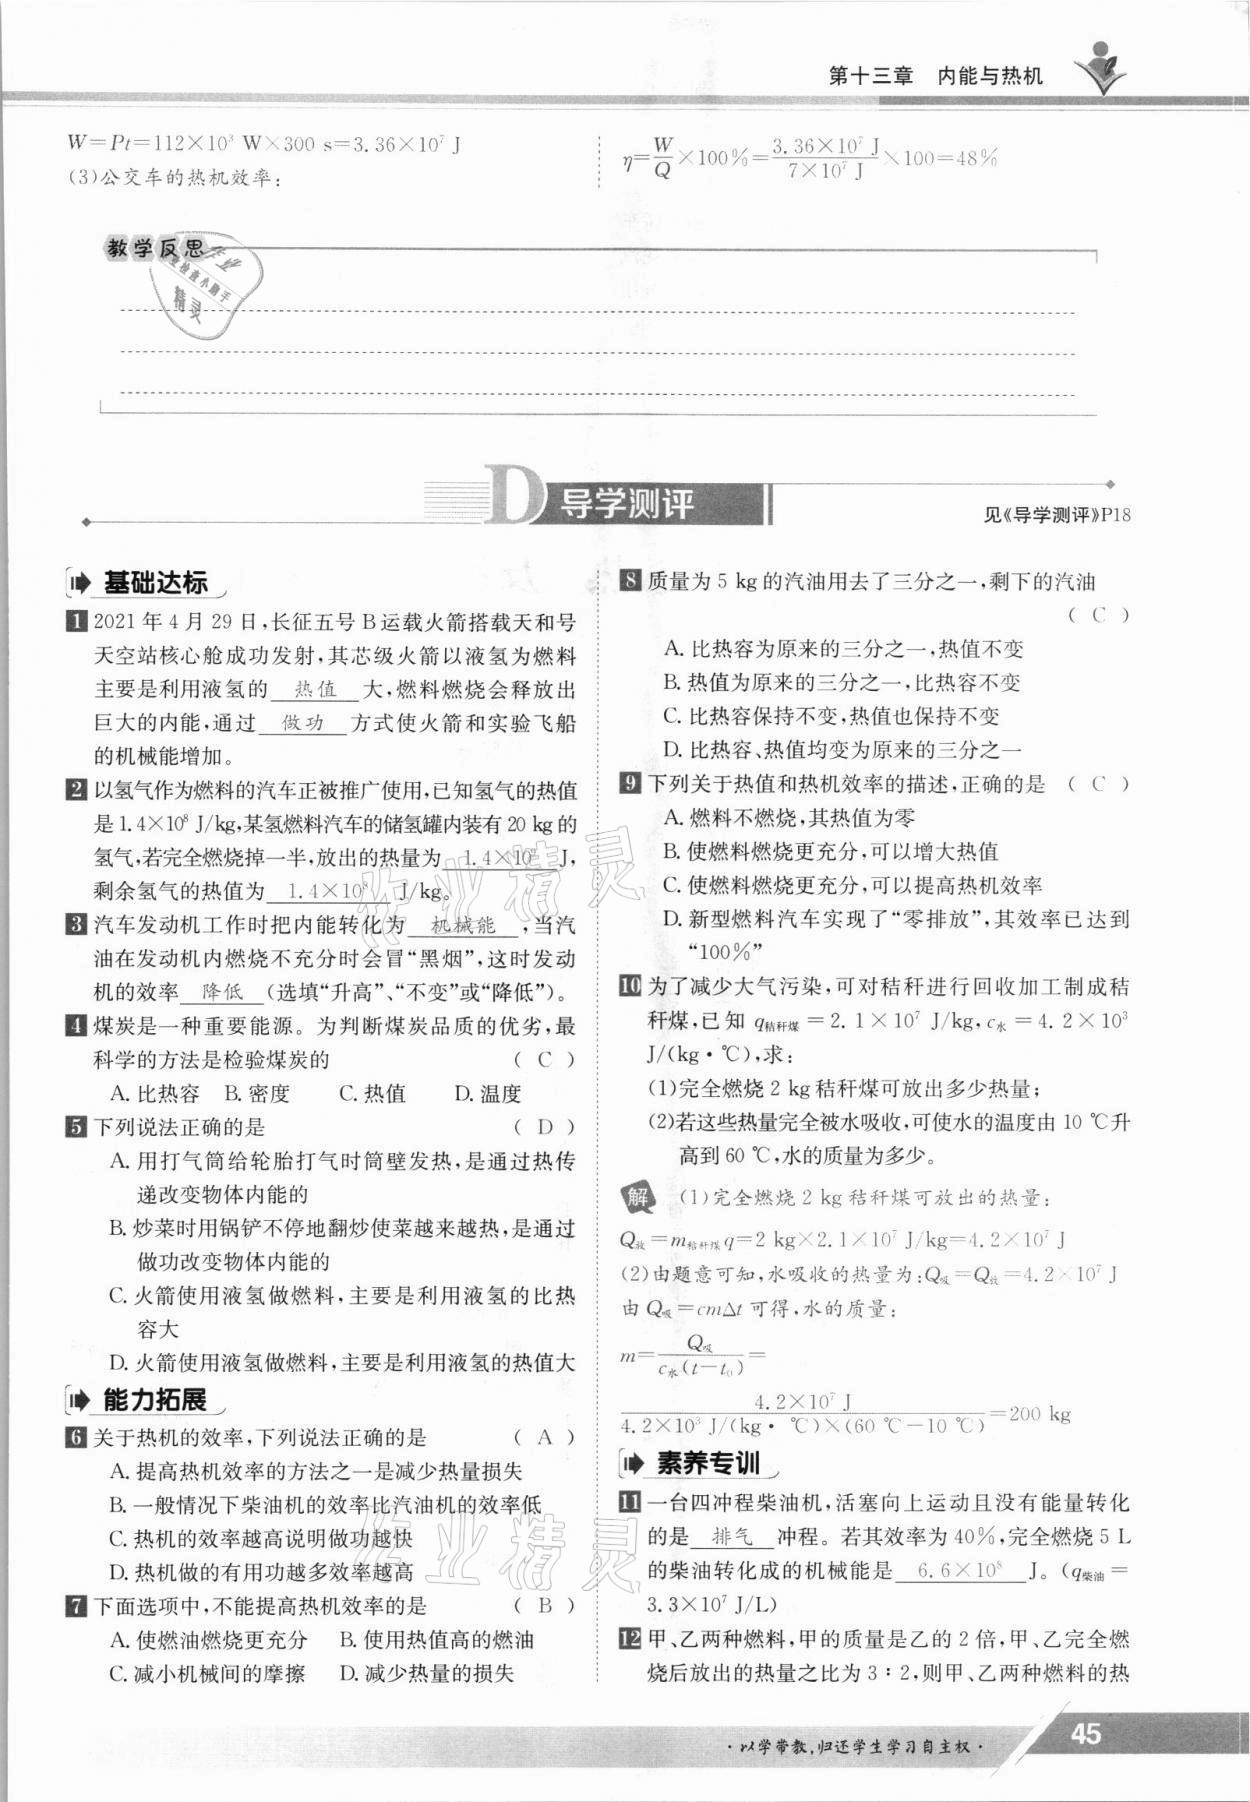 第十三章 内能与热机
W=Pt=112×10³ W×300 s=3.36×10⁷ J
(3)公交车的热机效率:
η=W/Q×100%=3.36×10⁷ J/7×10⁷ J×100=48%
教学反思
D 导学测评
见《导学测评》P18
基础达标
1 2021 年 4 月 29 日,长征五号 B 运载火箭搭载天和号
天空站核心舱成功发射,其芯级火箭以液氢为燃料
主要是利用液氢的 热值 大,燃料燃烧会释放出
巨大的内能,通过 做功 方式使火箭和实验飞船
的机械能增加。
2 以氢气作为燃料的汽车正被推广使用,已知氢气的热值
是 1.4×10⁸ J/kg,某氢燃料汽车的储氢罐内装有 20 kg 的
氢气,若完全燃烧掉一半,放出的热量为 1.4×10⁹ J,
剩余氢气的热值为 1.4×10⁸ J/kg。
3 汽车发动机工作时把内能转化为 机械能 ,当汽
油在发动机内燃烧不充分时会冒“黑烟”,这时发动
机的效率 降低 (选填“升高”、“不变”或“降低”)。
4 煤炭是一种重要能源。为判断煤炭品质的优劣,最
科学的方法是检验煤炭的 ( C )
A. 比热容 B. 密度 C. 热值 D. 温度
5 下列说法正确的是 ( D )
A. 用打气筒给轮胎打气时筒壁发热,是通过热传
递改变物体内能的
B. 炒菜时用锅铲不停地翻炒使菜越来越热,是通过
做功改变物体内能的
C. 火箭使用液氢做燃料,主要是利用液氢的比热
容大
D. 火箭使用液氢做燃料,主要是利用液氢的热值大
能力拓展
6 关于热机的效率,下列说法正确的是 ( A )
A. 提高热机效率的方法之一是减少热量损失
B. 一般情况下柴油机的效率比汽油机的效率低
C. 热机的效率越高说明做功越快
D. 热机做的有用功越多效率越高
7 下面选项中,不能提高热机效率的是 ( B )
A. 使燃油燃烧更充分 B. 使用热值高的燃油
C. 减小机械间的摩擦 D. 减少热量的损失
8 质量为 5 kg 的汽油用去了三分之一,剩下的汽油
( C )
A. 比热容为原来的三分之一,热值不变
B. 热值为原来的三分之一,比热容不变
C. 比热容保持不变,热值也保持不变
D. 比热容、热值均变为原来的三分之一
9 下列关于热值和热机效率的描述,正确的是 ( C )
A. 燃料不燃烧,其热值为零
B. 使燃料燃烧更充分,可以增大热值
C. 使燃料燃烧更充分,可以提高热机效率
D. 新型燃料汽车实现了“零排放”,其效率已达到
“100%”
10 为了减少大气污染,可对秸秆进行回收加工制成秸
秆煤,已知 q秸秆煤=2.1×10⁷ J/kg,c水=4.2×10³
J/(kg·℃),求:
(1)完全燃烧 2 kg 秸秆煤可放出多少热量;
(2)若这些热量完全被水吸收,可使水的温度由 10 ℃升
高到 60 ℃,水的质量为多少。
解 (1)完全燃烧 2 kg 秸秆煤可放出的热量:
Q放=m秸秆煤q=2 kg×2.1×10⁷ J/kg=4.2×10⁷ J
(2)由题意可知,水吸收的热量为:Q吸=Q放=4.2×10⁷ J
由 Q吸=cmΔt 可得,水的质量:
m=Q吸/c水(t-t₀)=
4.2×10⁷ J/4.2×10³ J/(kg·℃)×(60 ℃-10 ℃)=200 kg
素养专训
11 一台四冲程柴油机,活塞向上运动且没有能量转化
的是 排气 冲程。若其效率为 40%,完全燃烧 5 L
的柴油转化成的机械能是 6.6×10⁸ J。(q柴油=
3.3×10⁷ J/L)
12 甲、乙两种燃料,甲的质量是乙的 2 倍,甲、乙完全燃
烧后放出的热量之比为 3∶2,则甲、乙两种燃料的热
·以学带教,归还学生学习自主权·
45
作业
作业检查小助手
精灵
作业精灵
作业精灵